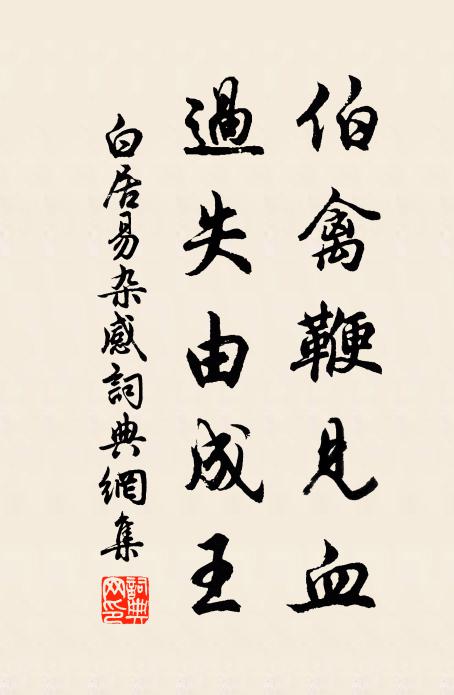 伯禽鞭見血
過失由成王
白居易杂感詞典網集
詞典网印